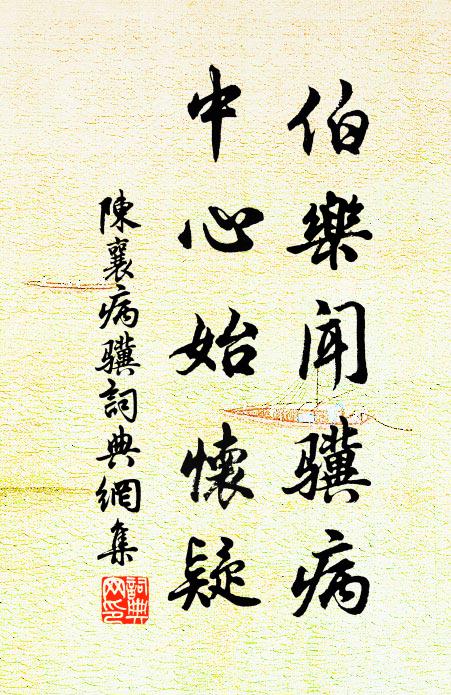 伯樂聞驥病
中心始懷疑
陳襄病驥詞典網集
詞典網印